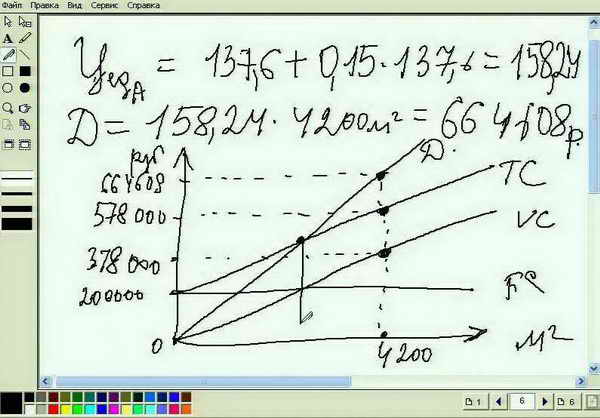 Файл Правка Вид Сервис Справка
Цед А = 137,6 + 0,15 · 137,6 = 158,24
Д = 158,24 · 4200 м² = 664 608 р.
руб
Д.
664608
TC
578 000
VC
378 000
200000
FC
0
4200
м²
1
6
6